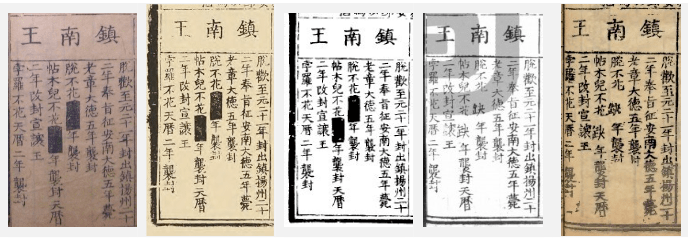 鎮南王
脫歡至元二十一年封出鎮揚州二十
二年奉旨征安南大德五年薨
老章大德五年襲封
脫不花 年襲封
帖木兒不花 年襲封天曆
二年改封宣讓王
孛羅不花天曆二年襲封
鎮南王
脫歡至元二十一年封出鎮揚州二十
二年奉旨征安南大德五年薨
老章大德五年襲封
脫不花 年襲封
帖木兒不花 年襲封天曆
二年改封宣讓王
孛羅不花天曆二年襲封
鎮南王
脫歡至元二十一年封出鎮揚州二十
二年奉旨征安南大德五年薨
老章大德五年襲封
脫不花 年襲封
帖木兒不花 年襲封天曆
二年改封宣讓王
孛羅不花天曆二年襲封
鎮南王
脫歡至元二十一年封出鎮揚州二十
二年奉旨征安南大德五年薨
老章大德五年襲封
脫不花 缺 年襲封
帖木兒不花 缺 年襲封天曆
二年改封宣讓王
孛羅不花天曆二年襲封
鎮南王
脫歡至元二十一年封出鎮揚州二十
二年奉旨征安南大德五年薨
老章大德五年襲封
脫不花 缺 年襲封
帖木兒不花 缺 年襲封天曆
二年改封宣讓王
孛羅不花天曆二年襲封